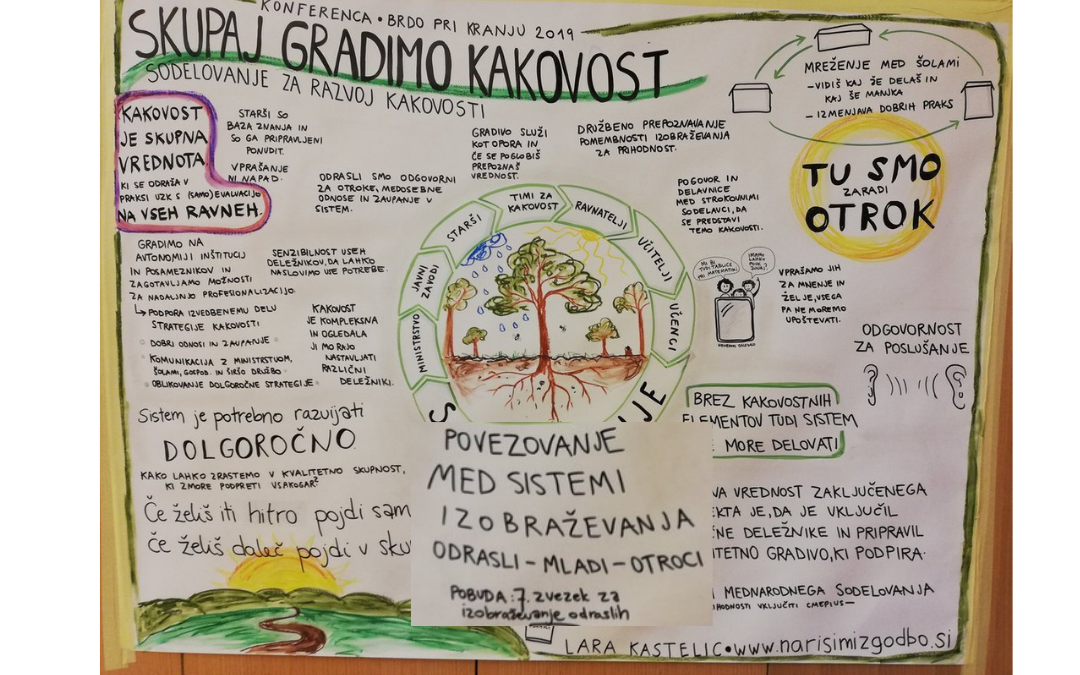 KONFERENCA • BRDO PRI KRANJU 2019
SKUPAJ GRADIMO KAKOVOST
SODELOVANJE ZA RAZVOJ KAKOVOSTI
KAKOVOST
JE SKUPNA
VREDNOTA,
KI SE ODRAŽA V
PRAKSI VZK S (SAMO)EVALUACIJO
NA VSEH RAVNEH.
STARŠI SO
BAZA ZNANJA IN
SO GA PRIPRAVLJENI
PONUDIT.
VPRAŠANJE
NI NAPAD.
ODRASLI SMO ODGOVORNI
ZA OTROKE, MEDOSEBNE
ODNOSE IN ZAUPANJE V
SISTEM.
GRADIVO SLUŽI
KOT OPORA IN
ČE SE POGLOBIŠ
PREPOZNAŠ
VREDNOST.
DRUŽBENO PREPOZNAVANJE
POMEMBNOSTI IZOBRAŽEVANJA
ZA PRIHODNOST.
MREŽENJE MED ŠOLAMI
- VIDIŠ KAJ ŽE DELAŠ IN
KAJ ŠE MANJKA
- IZMENJAVA DOBRIH PRAKS
TU SMO
ZARADI
OTROK
POGOVOR IN
DELAVNICE
MED STROKOVNIMI
SODELAVCI, DA
SE PREDSTAVI
TEMO KAKOVOSTI.
GRADIMO NA
AVTONOMIJI INŠTITUCIJ
IN POSAMEZNIKOV IN
ZAGOTAVLJAMO MOŽNOSTI
ZA NADALJNJO PROFESIONALIZACIJO.
PODPORA IZVEDBENEMU DELU
STRATEGIJE KAKOVOSTI
DOBRI ODNOSI IN ZAUPANJE
KOMUNIKACIJA Z MINISTRSTVOM,
ŠOLAMI, GOSPOD. IN ŠIRŠO DRUŽBO
OBLIKOVANJE DOLGOROČNE STRATEGIJE
SENZIBILNOST VSEH
DELEŽNIKOV, DA LAHKO
NASLOVIMO VSE POTREBE.
KAKOVOST
JE KOMPLEKSNA
IN OGLEDALA
JI MORAJO
NASTAVLJATI
RAZLIČNI
DELEŽNIKI.
MINISTRSTVO
JAVNI
ZAVODI
STARŠI
TIMI ZA
KAKOVOST
RAVNATELJI
UČITELJI
UČENCI
S
JE
VPRAŠAMO JIH
ZA MNENJE IN
ŽELJE, VSEGA
PA NE MOREMO
UPOŠTEVATI.
ODGOVORNOST
ZA POSLUŠANJE
BREZ KAKOVOSTNIH
ELEMENTOV TUDI SISTEM
MORE DELOVATI
Sistem je potrebno razvijati
DOLGOROČNO
KAKO LAHKO ZRASTEMO V KVALITETNO SKUPNOST,
KI ZMORE PODPRETI VSAKOGAR?
Če želiš iti hitro pojdi sam
če želiš daleč pojdi v sku
POVEZOVANJE
MED SISTEMI
IZOBRAŽEVANJA
ODRASLI - MLADI - OTROCI
POBUDA: 7. zvezek za
izobraževanje odraslih
VA VREDNOST ZAKLJUČENEGA
EKTA JE, DA JE VKLJUČIL
NE DELEŽNIKE IN PRIPRAVIL
ITETNO GRADIVO, KI PODPIRA.
MEDNARODNEGA SODELOVANJA
LARA KASTELIC • www.narisimizgodbo.si